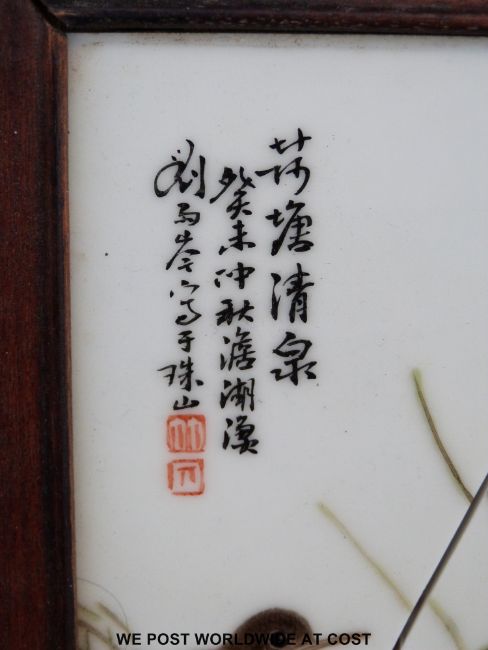 荷塘清泉
癸未仲秋澹湖漁
劉雨岑寫于珠山
竹
WE POST WORLDWIDE AT COST